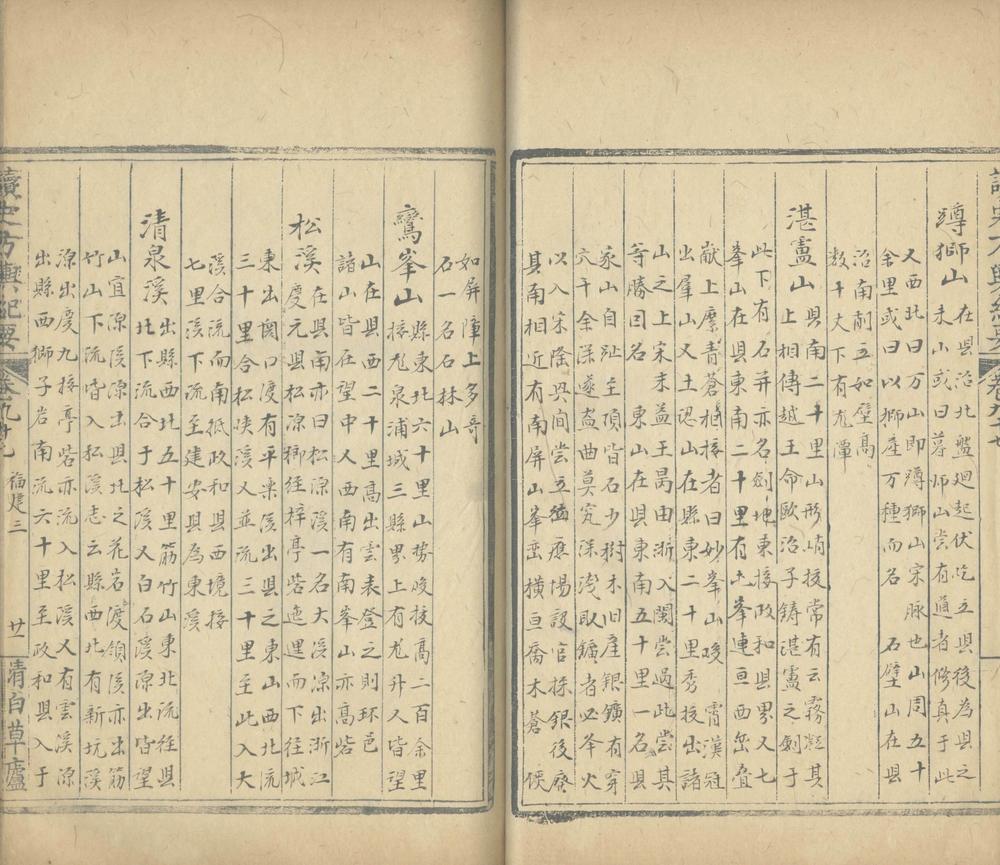 蹲獅山在县治北盤廻起伏屹立县後為县之
主山或曰暮师山尝有道者修真于此
又西北曰万山即蹲獅山宋脉也山周五十
余里或曰以獅産万種而名 石壁山在县
治南削立如壁高
数十丈下有龙潭
湛盧山县南二十里山形峭拔常有云霧凝其
上相傳越王命歐冶子鋳湛盧之劍于
此下有石井亦名劍池東接政和县界又七
峯山在县東南二十里有七峯連亘西岱叠
献上縻青蒼相接者曰妙峯山峻霄漢冠
出羣山又土認山在縣東二十里秀拔出諸
山之上宋末益王昺由浙入閩尝過此尝其
等勝因名 東山在县東南五十里一名县
豕山自趾至頂皆石少樹木旧産銀鑛有穿
穴千余深邃盘曲莫究深浅取鑛者必举火
以入宋隆興間尝立瑞應場設官採銀後廢
其南相近有南屏山峯峦橫亘喬木蒼
如屏障上多奇
石一名石林山
鸞峯山縣東北六十里山势峻拔高二百余里
接龙泉浦城三縣界上有龙井又皆望
山在县西二十里高出雲表登之則环邑
諸山皆在望中又西南有南峯山亦高砦
松溪在县南亦曰松源溪一名大溪源出浙江
慶元县松源鄉经梓亭砦迤逦而下往城
東出関口渡有平渠溪出县之東山西北流
三十里合松峡溪又並流三十里至此入大
溪合流而南抵政和县西境接
七里溪下流至建安县為東溪
清泉溪出縣西北五十里筋竹山東北流往县
北下流合于松溪又白石溪源出皆望
山宜源溪源出县北之花岩渡領溪亦出筋
竹山下流皆入松溪志云縣西北有新坑溪
源出慶九接亭砦亦流入松溪又有雲溪源
出縣西獅子岩南流六十里至政和县入于
讀史方輿紀要 卷九十九 福建三 廿一 清白草廬